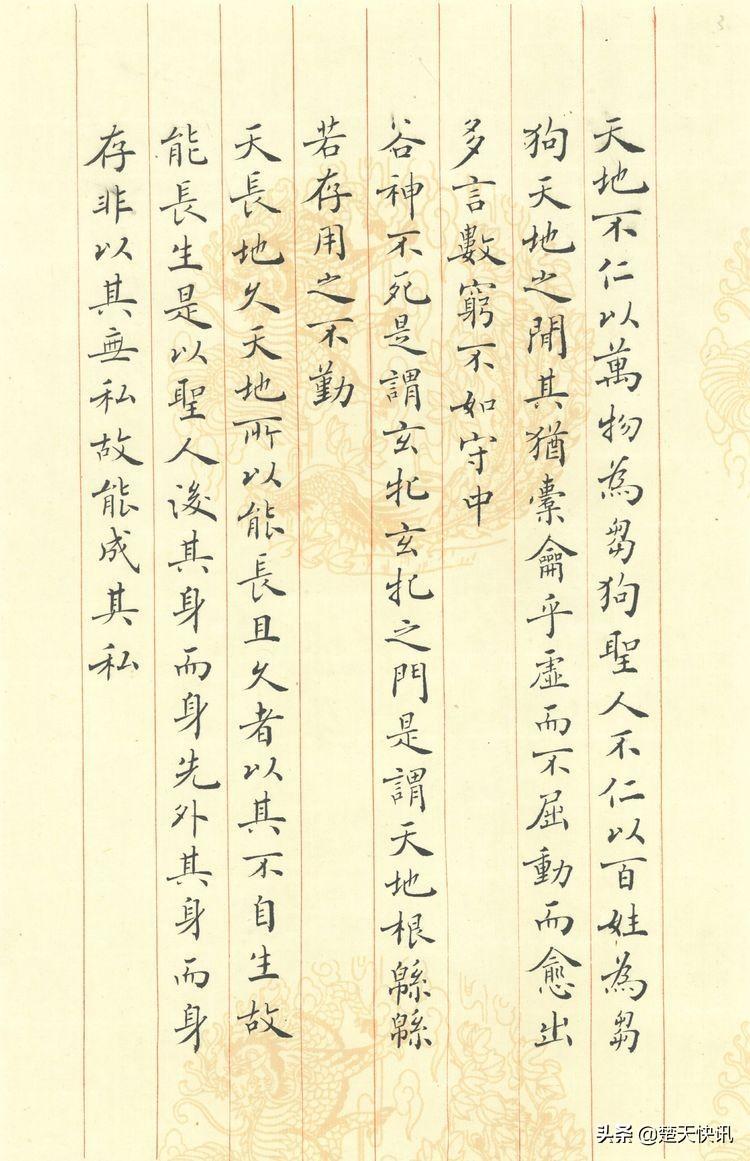 天地不仁以萬物為芻狗聖人不仁以百姓為芻
狗天地之間其猶橐龠乎虛而不屈動而愈出
多言數窮不如守中
谷神不死是謂玄牝玄牝之門是謂天地根緜緜
若存用之不勤
天長地久天地所以能長且久者以其不自生故
能長生是以聖人後其身而身先外其身而身
存非以其無私故能成其私
3
头条 @楚天快讯